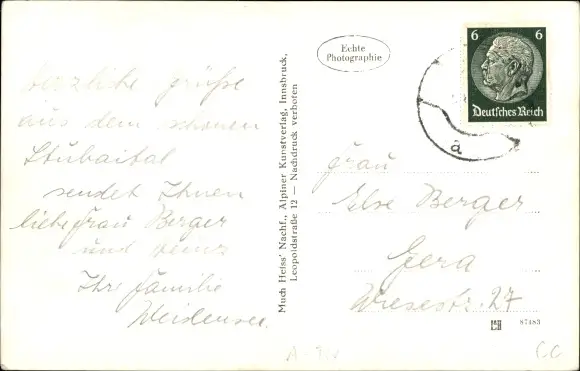 Herzliche Grüße
aus dem schönen
Stubaital
sendet Ihnen
liebe Frau Berger
und
Ihre Familie
Weidensee.
Much Heiss' Nachf., Alpiner Kunstverlag, Innsbruck,
Leopoldstraße 12 — Nachdruck verboten
Echte
Photographie
6 6
Deutsches Reich
a
Frau
Else Berger
Gera
Wiesestr. 27
87483